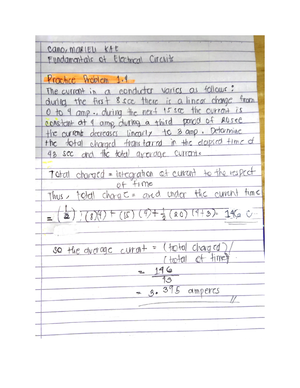 Cano, Marieli Kae
Fundamentals of Electrical Circuits
Practice Problem 1.1
The current in a conductor varies as follows:
during the first 8 sec there is a linear change from
0 to 9 amp. during the next 15 sec the current is
constant at 9 amp; during a third period of 20 sec
the current decreases linearly to 3 amp. Determine
the total charged transferred in the elapsed time of
43 sec and the total average current.
Total charged = integration of current to the respect
of time
Thus, total charge = area under the current time
= (1/2) (8)(9) + (15) (9) + 1/2 (20) (9+3) 146 C
so the average current = (total charged) /
(total of time)
= 146
43
= 3.395 amperes